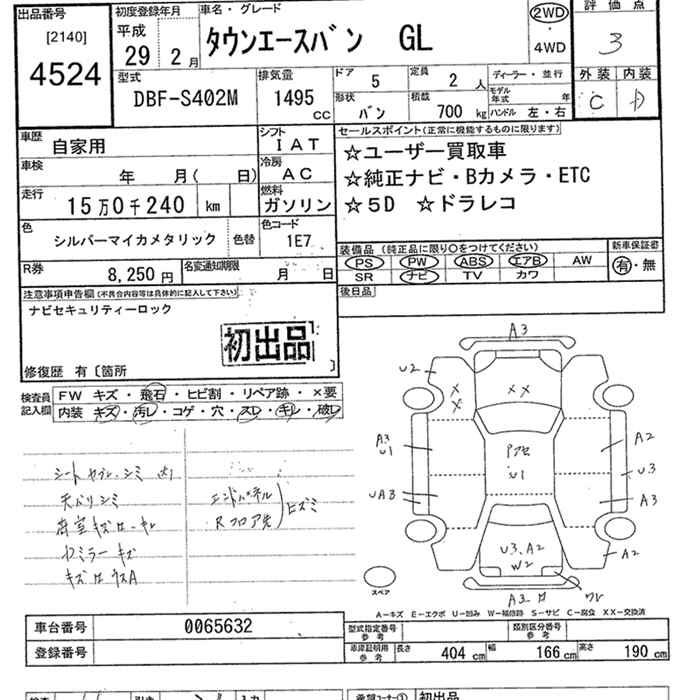 出品番号
[2140]
4524
初度登録年月
平成
29年 2月
車名・グレード
タウンエースバン GL
2WD
・
4WD
評価点
3
外装 内装
C D
型式
DBF-S402M
排気量
1495
cc
ドア 5
定員 2人
形状 バン
積載 700 kg
ディーラー・並行
モデル年式 年
ハンドル 左・右
車歴
自家用
シフト
IAT
車検
年 月( 日)
冷房
AC
走行
15万0千240 km
燃料
ガソリン
色
シルバーマイカメタリック
色替
色コード
1E7
R券
8,250円
名変通知期限
月 日
セールスポイント(正常に機能するものに限ります)
☆ユーザー買取車
☆純正ナビ・Bカメラ・ETC
☆5D ☆ドラレコ
装備品(純正品に限り○をつけてください)
PS PW ABS エアB AW
SR ナビ TV カワ
新車保証書
有・無
後日品
注意事項申告欄(不具合内容等は具体的に記入して下さい)
ナビセキュリティーロック
初出品
修復歴 有〔箇所 〕
検査員記入欄
FW キズ・飛石・ヒビ割・リペア跡・×要
内装 キズ・汚レ・コゲ・穴・スレ・キレ・破レ
シート ヤブレ、シミ
天バリシミ
荷室キズ
ミラーキズ
エンドパネル
Rフロア先
ヒズミ
A3
U2
XX
XX
A3
U1
Pアセ
U1
A2
U3
UA3
A3
U3、A2
W2
A2
A3
ワレ
スペア
A-キズ E-エクボ U-凹み W-補修跡 S-サビ C-腐食 XX-交換済
車台番号
0065632
登録番号
型式指定番号 参考
類別区分番号 参考
車庫証明用 参考
長さ 404 cm
幅 166 cm
高さ 190 cm
初出品